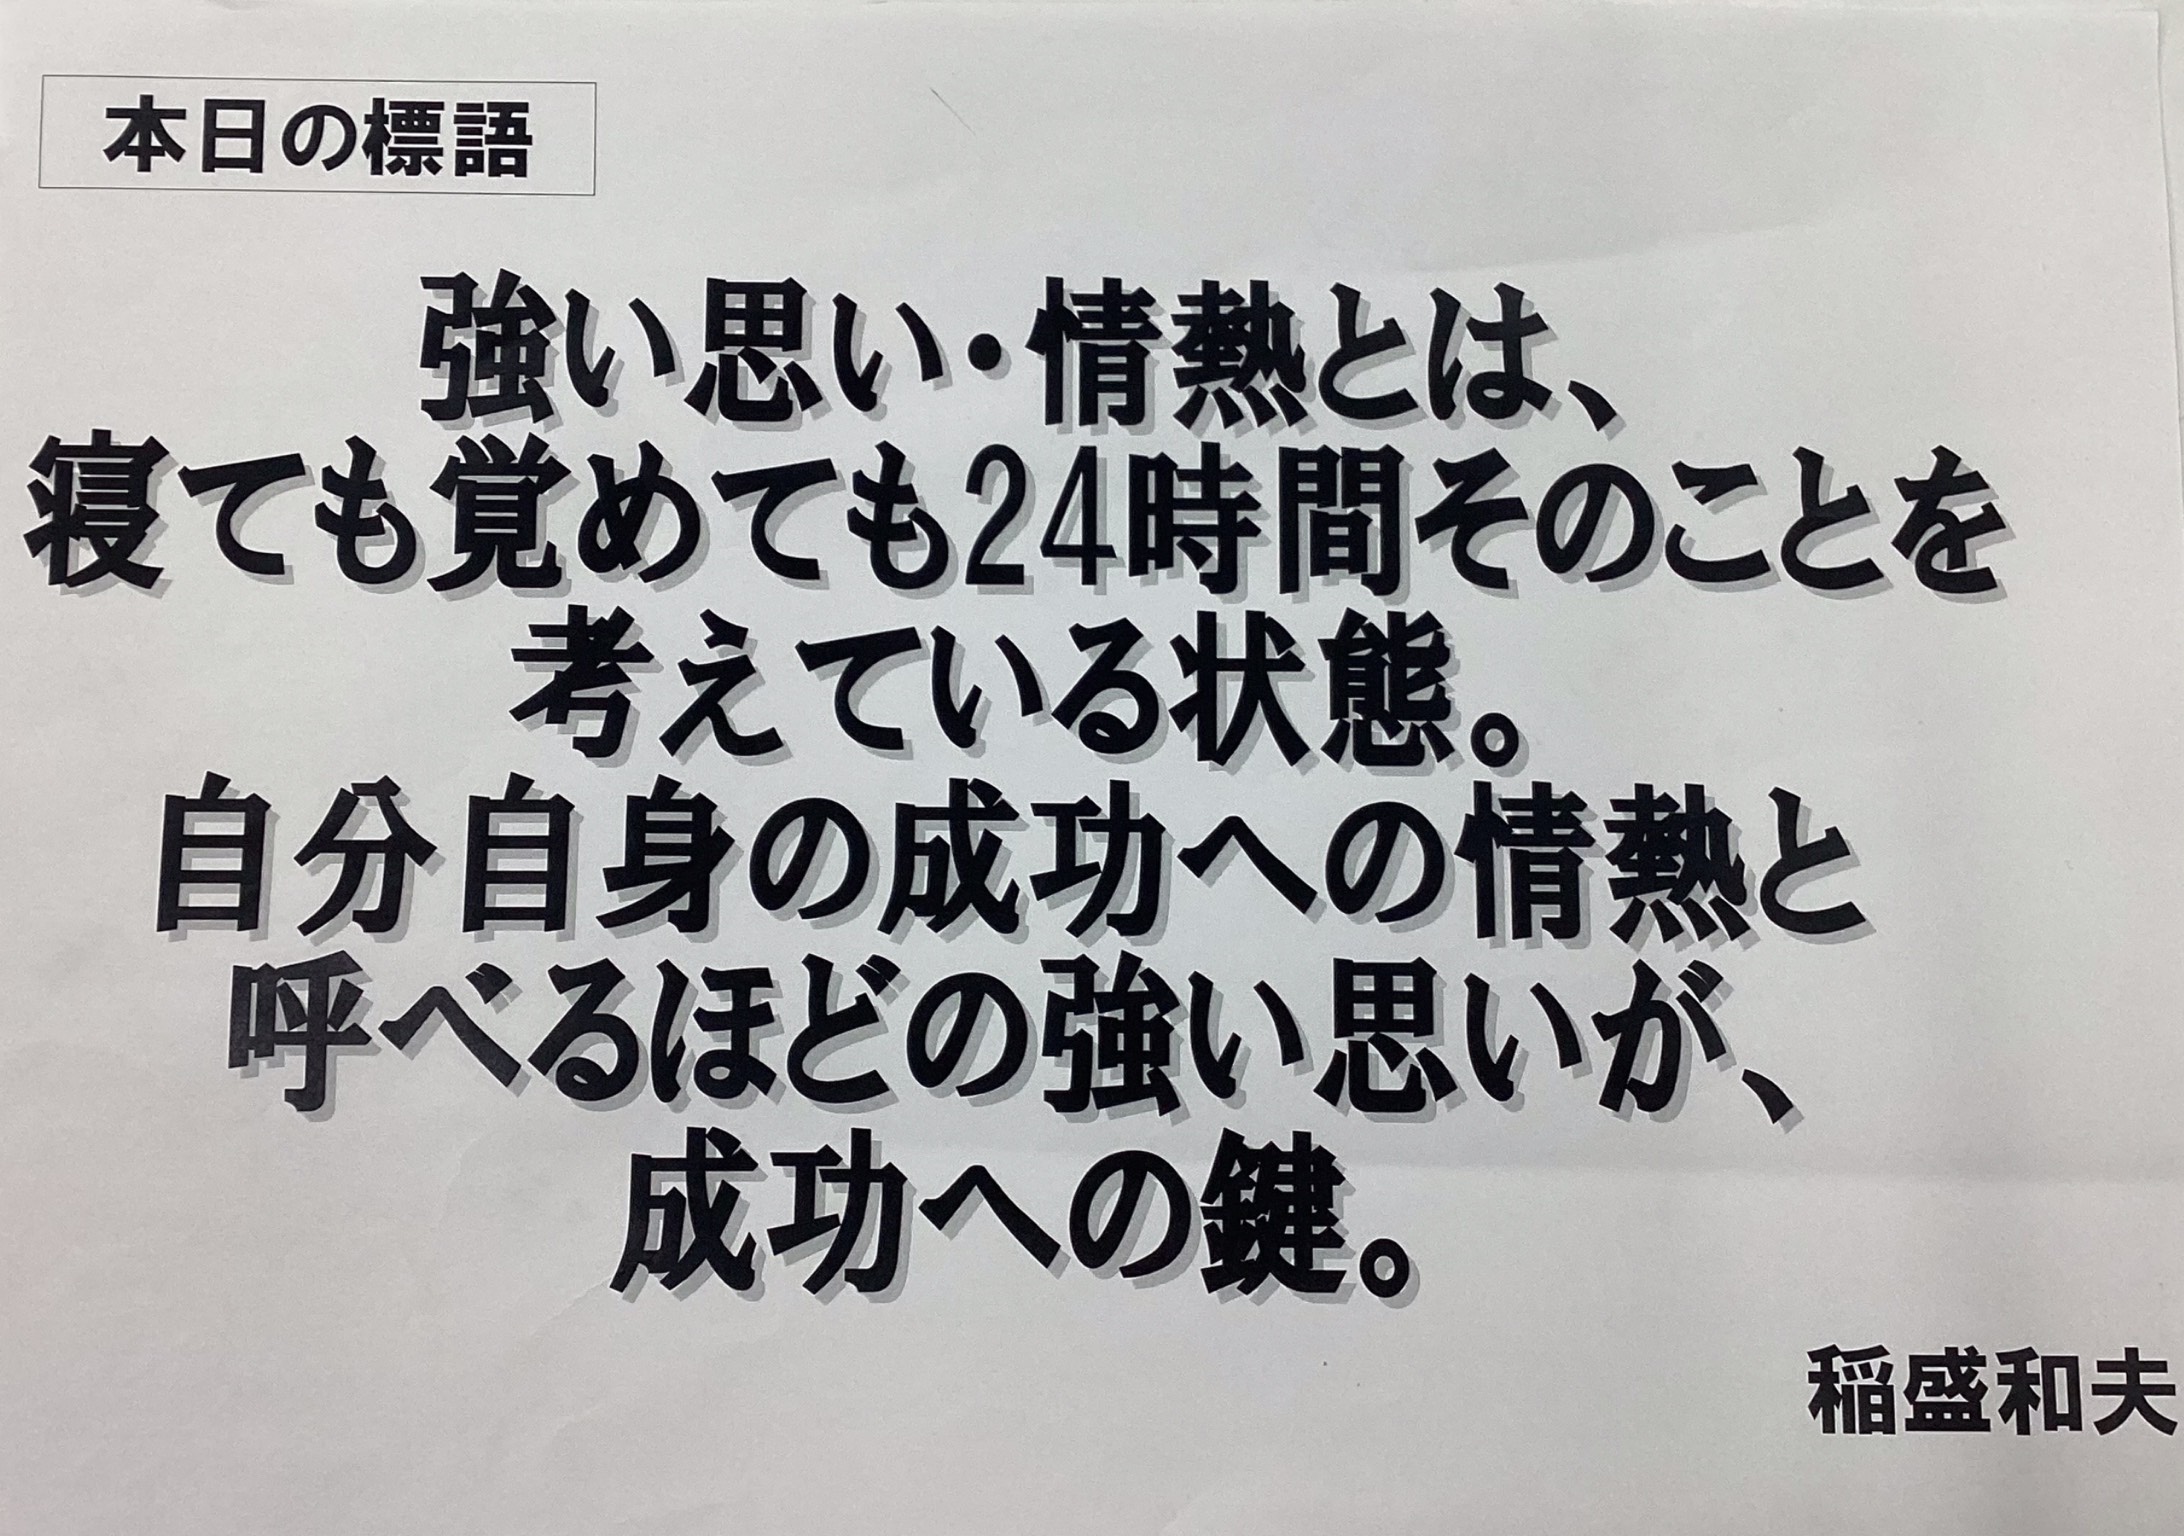 本日の標語
強い思い・情熱とは、
寝ても覚めても24時間そのことを
考えている状態。
自分自身の成功への情熱と
呼べるほどの強い思いが、
成功への鍵。
稲盛和夫